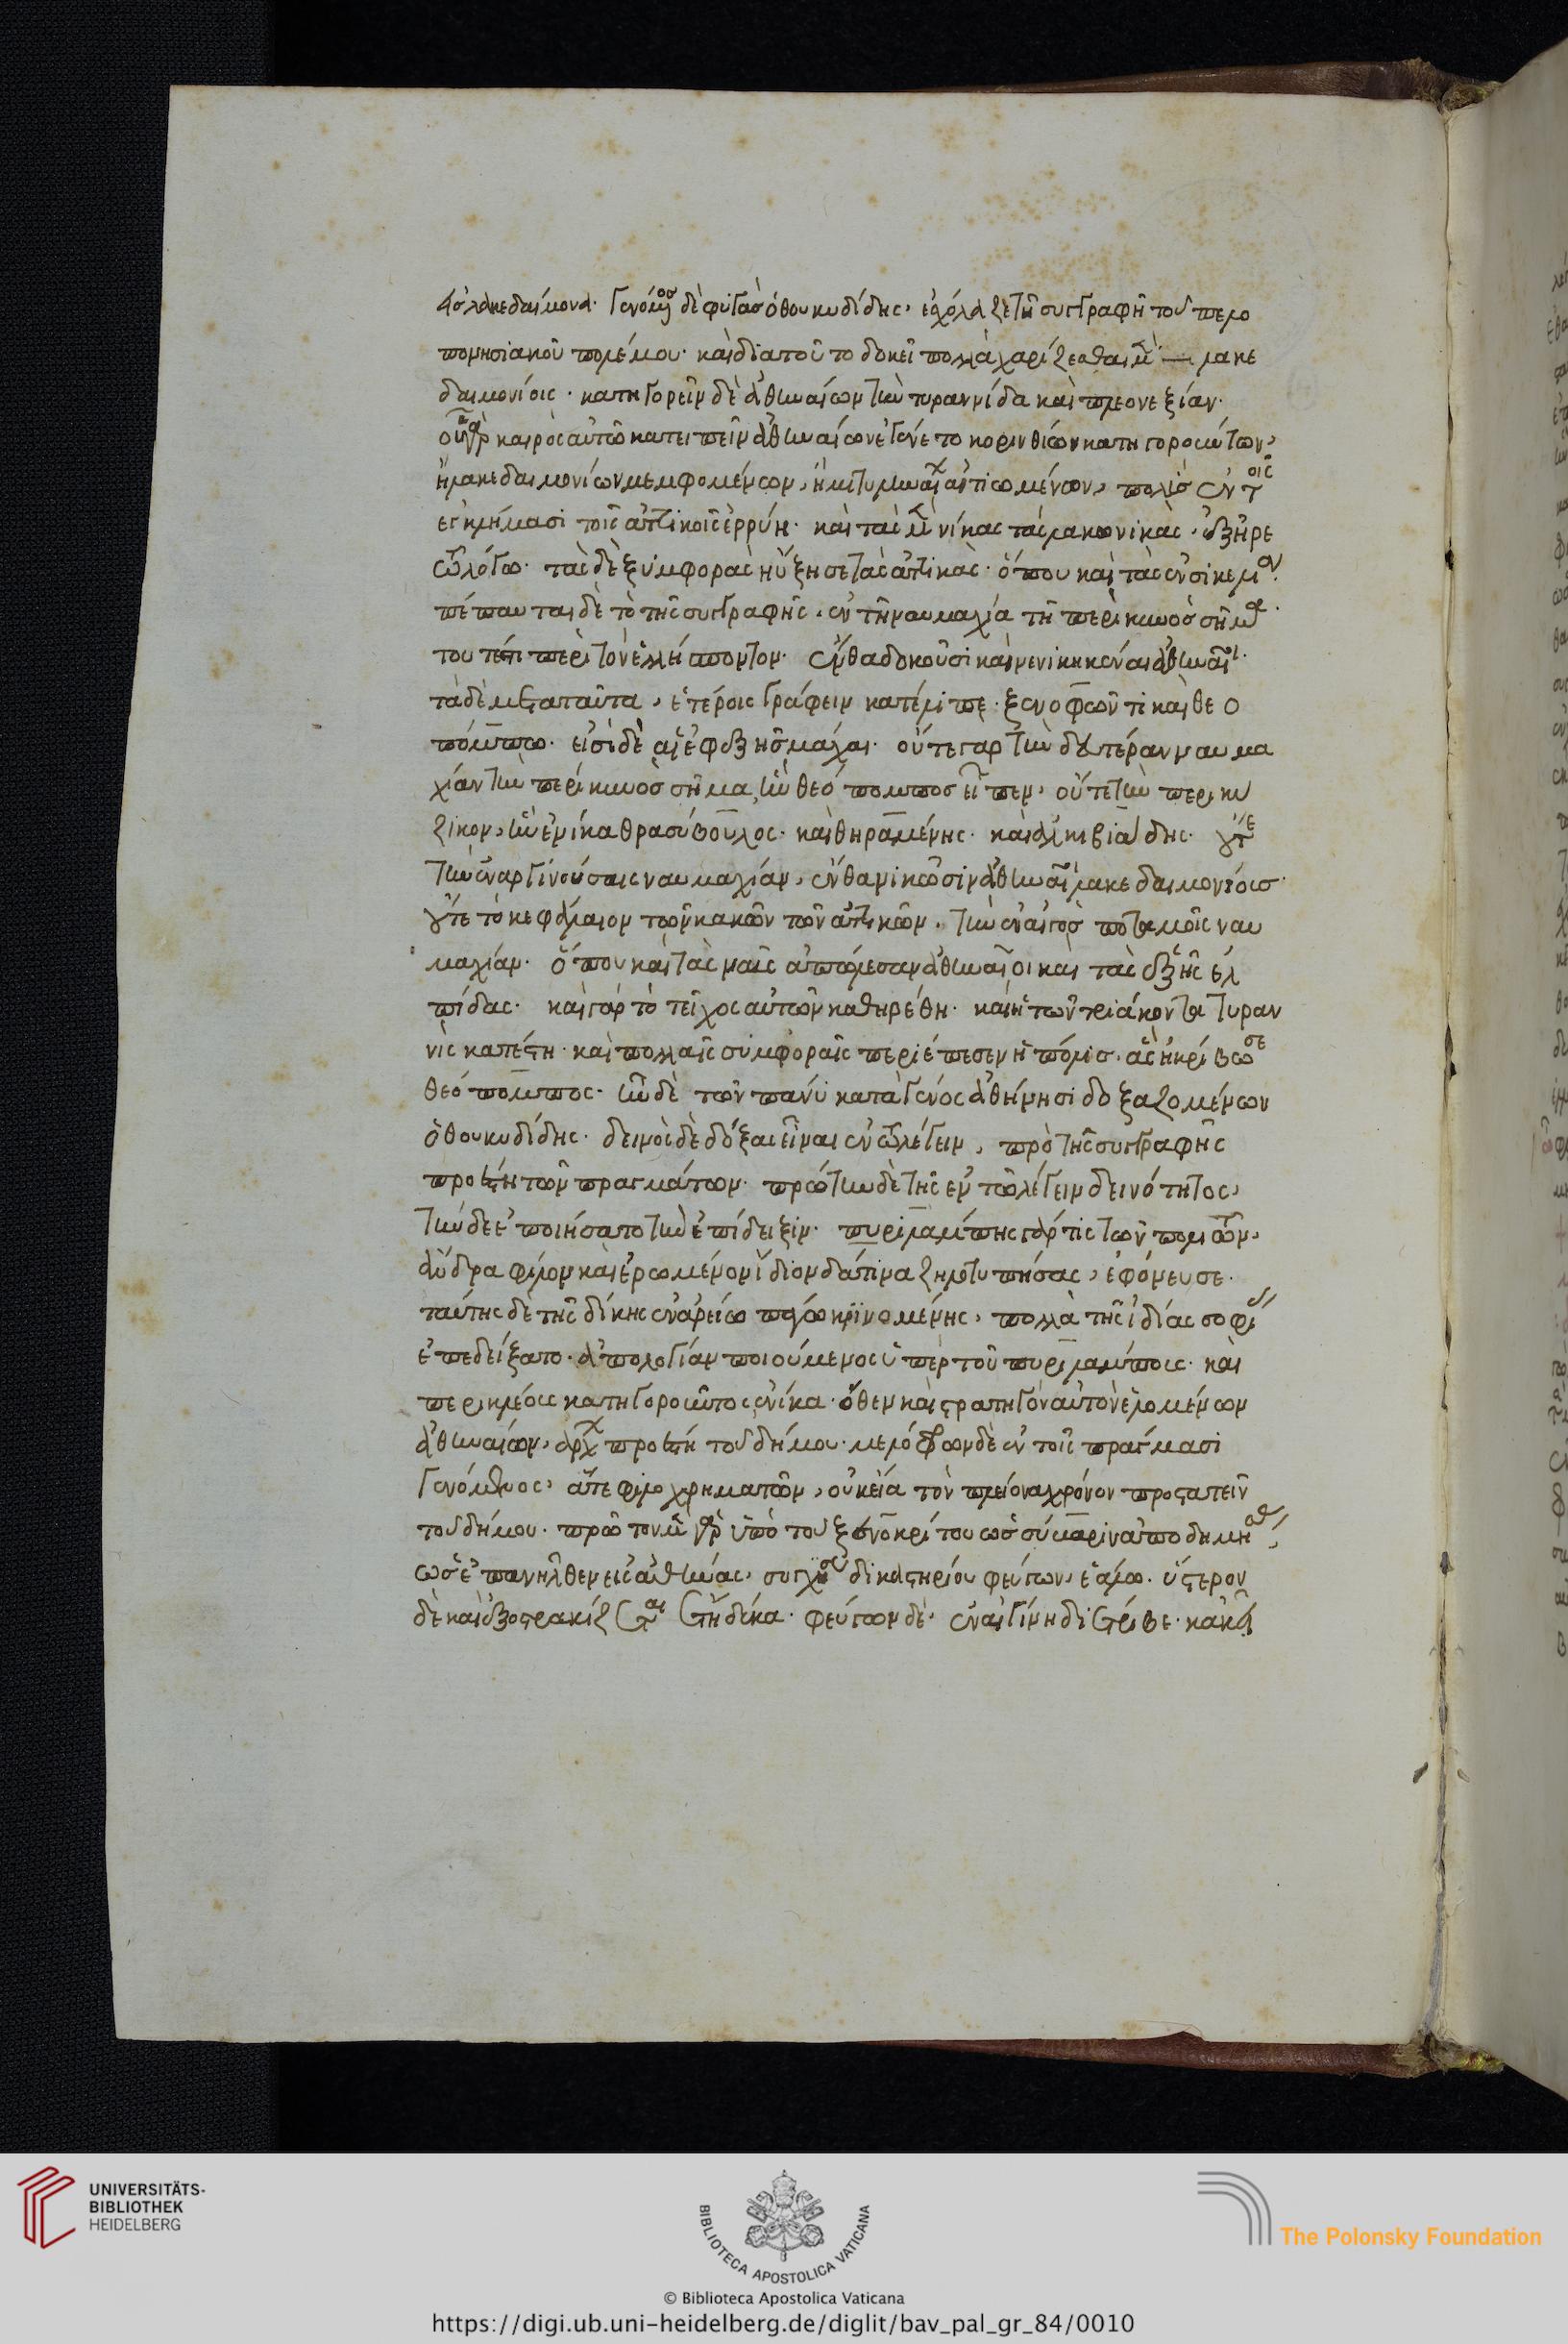 εἰς λακεδαίμονα. γενόμενος δὲ φυγὰς ὁ θουκυδίδης, ἐσχόλαζε τῆ συγγραφῆ τοῦ πελο
πονησιακοῦ πολέμου. καὶ διατοῦτο δοκεῖ πολλὰ χαρίζεσθαι μὲν — λακε
δαιμονίοις. κατηγορεῖν δὲ ἀθηναίων τὴν τυραννίδα καὶ πλεονεξίαν.
οὗ γὰρ καιρὸς αὐτῶ κατειπεῖν ἀθηναίων ἐγένετο κορινθίων κατηγορούντων,
ἢ λακεδαιμονίων μεμφομένων, ἢ μιτυληναίων αἰτιωμένων, πολὺς ἐν τοῖς
ἐγκλήμασι τοῖς ἀττικοῖς ἐρρύη. καὶ τὰς μὲν νίκας τὰς λακωνικὰς, ἐξῆρε
τῶ λόγω. τὰς δὲ ξυμφορὰς ηὔξησε τὰς ἀττικάς. ὅπου καὶ τὰς ἐν σικελία.
πέπαυται δὲ τὸ τῆς συγγραφῆς, ἐν τῆ ναυμαχία τῆ περὶ κυνὸς σῆμα.
τουτέστι περὶ τὸν ἑλλήσποντον. ἔνθα δοκοῦσι καὶ νενικηκέναι ἀθηναῖοι.
τὰ δὲ μετὰ ταῦτα, ἑτέροις γράφειν κατέλιπε. ξενοφῶντι καὶ θεο
πόμπω. εἰσὶ δὲ αἱ ἐφεξῆς μάχαι. οὔτε γαρ τὴν δευτέραν ναυμα
χίαν τὴν περὶ κυνὸς σῆμα, ἣν θεόπομπος εἶπεν, οὔτε τὴν περὶ κύ
ζικον, ἣν ἐνίκα θρασύβουλος. καὶ θηραμένης. καὶ ἀλκιβιάδης. οὔτε
τὴν ἐν ἀργινούσαις ναυμαχίαν, ἔνθα νικῶσιν ἀθηναῖοι λακεδαιμονίους.
οὔτε τὸ κεφάλαιον τῶν κακῶν τῶν ἀττικῶν, τὴν ἐν αἰγὸς ποταμοῖς ναυ
μαχίαν. ὅπου καὶ τὰς ναῦς ἀπώλεσαν ἀθηναῖοι καὶ τὰς ἑξῆς ἐλ
πίδας. καὶ γὰρ τὸ τεῖχος αὐτῶν καθηρέθη. καὶ ἡ τῶν τριάκοντα τυραν
νὶς κατέστη. καὶ πολλαῖς συμφοραῖς περιέπεσεν ἡ πόλις. ἃς ἠκρίβωσε
θεόπομπος. ἦν δὲ τῶν πάνυ κατὰ γένος ἀθήνησι δοξαζομένων
ὁ θουκυδίδης. δεινὸς δὲ δόξας εἶναι ἐν τῶ λέγειν, πρὸ τῆς συγγραφῆς
προέστη τῶν πραγμάτων. πρώτην δὲ τῆς ἐν τῶ λέγειν δεινότητος,
τήνδε ἐποιήσατο τὴν ἐπίδειξιν. πυριλάμπης γάρ τις τῶν πολιτῶν,
ἄνδρα φίλον καὶ ἐρώμενον ἴδιον διά τινα ζηλοτυπήσας, ἐφόνευσε.
ταύτης δὲ τῆς δίκης ἐν ἀρείω πάγω κρινομένης, πολλὰ τῆς ἰδίας σοφίας
ἐπεδείξατο. ἀπολογίαν ποιούμενος ὑπὲρ τοῦ πυριλάμπους. καὶ
περικλέους κατηγοροῦντος ἐνίκα. ὅθεν καὶ στρατηγὸν αὐτὸν ἑλομένων
ἀθηναίων, ἄρχων προέστη τοῦ δήμου. μεγαλόφρων δὲ ἐν τοῖς πράγμασι
γενόμενος, ἅτε φιλοχρηματῶν, οὐκ εἴα τὸν πλείονα χρόνον προστατεῖν
τοῦ δήμου. πρῶτον μὲν γὰρ ὑπὸ τοῦ ξενοκρίτου ὡς σύβαριν ἀποδημήσας,
ὡς ἐπανῆλθεν εἰς ἀθήνας, συγχύσεως δικαστηρίου φεύγων, ἑάλω. ὕστερον
δὲ καὶ ἐξοστρακίζεται ἔτη δέκα. φεύγων δὲ, ἐν αἰγίνη διέτριβε. κἀκεῖ
UNIVERSITÄTS-
BIBLIOTHEK
HEIDELBERG
BIBLIOTECA APOSTOLICA VATICANA
The Polonsky Foundation
© Biblioteca Apostolica Vaticana
https://digi.ub.uni-heidelberg.de/diglit/bav_pal_gr_84/0010